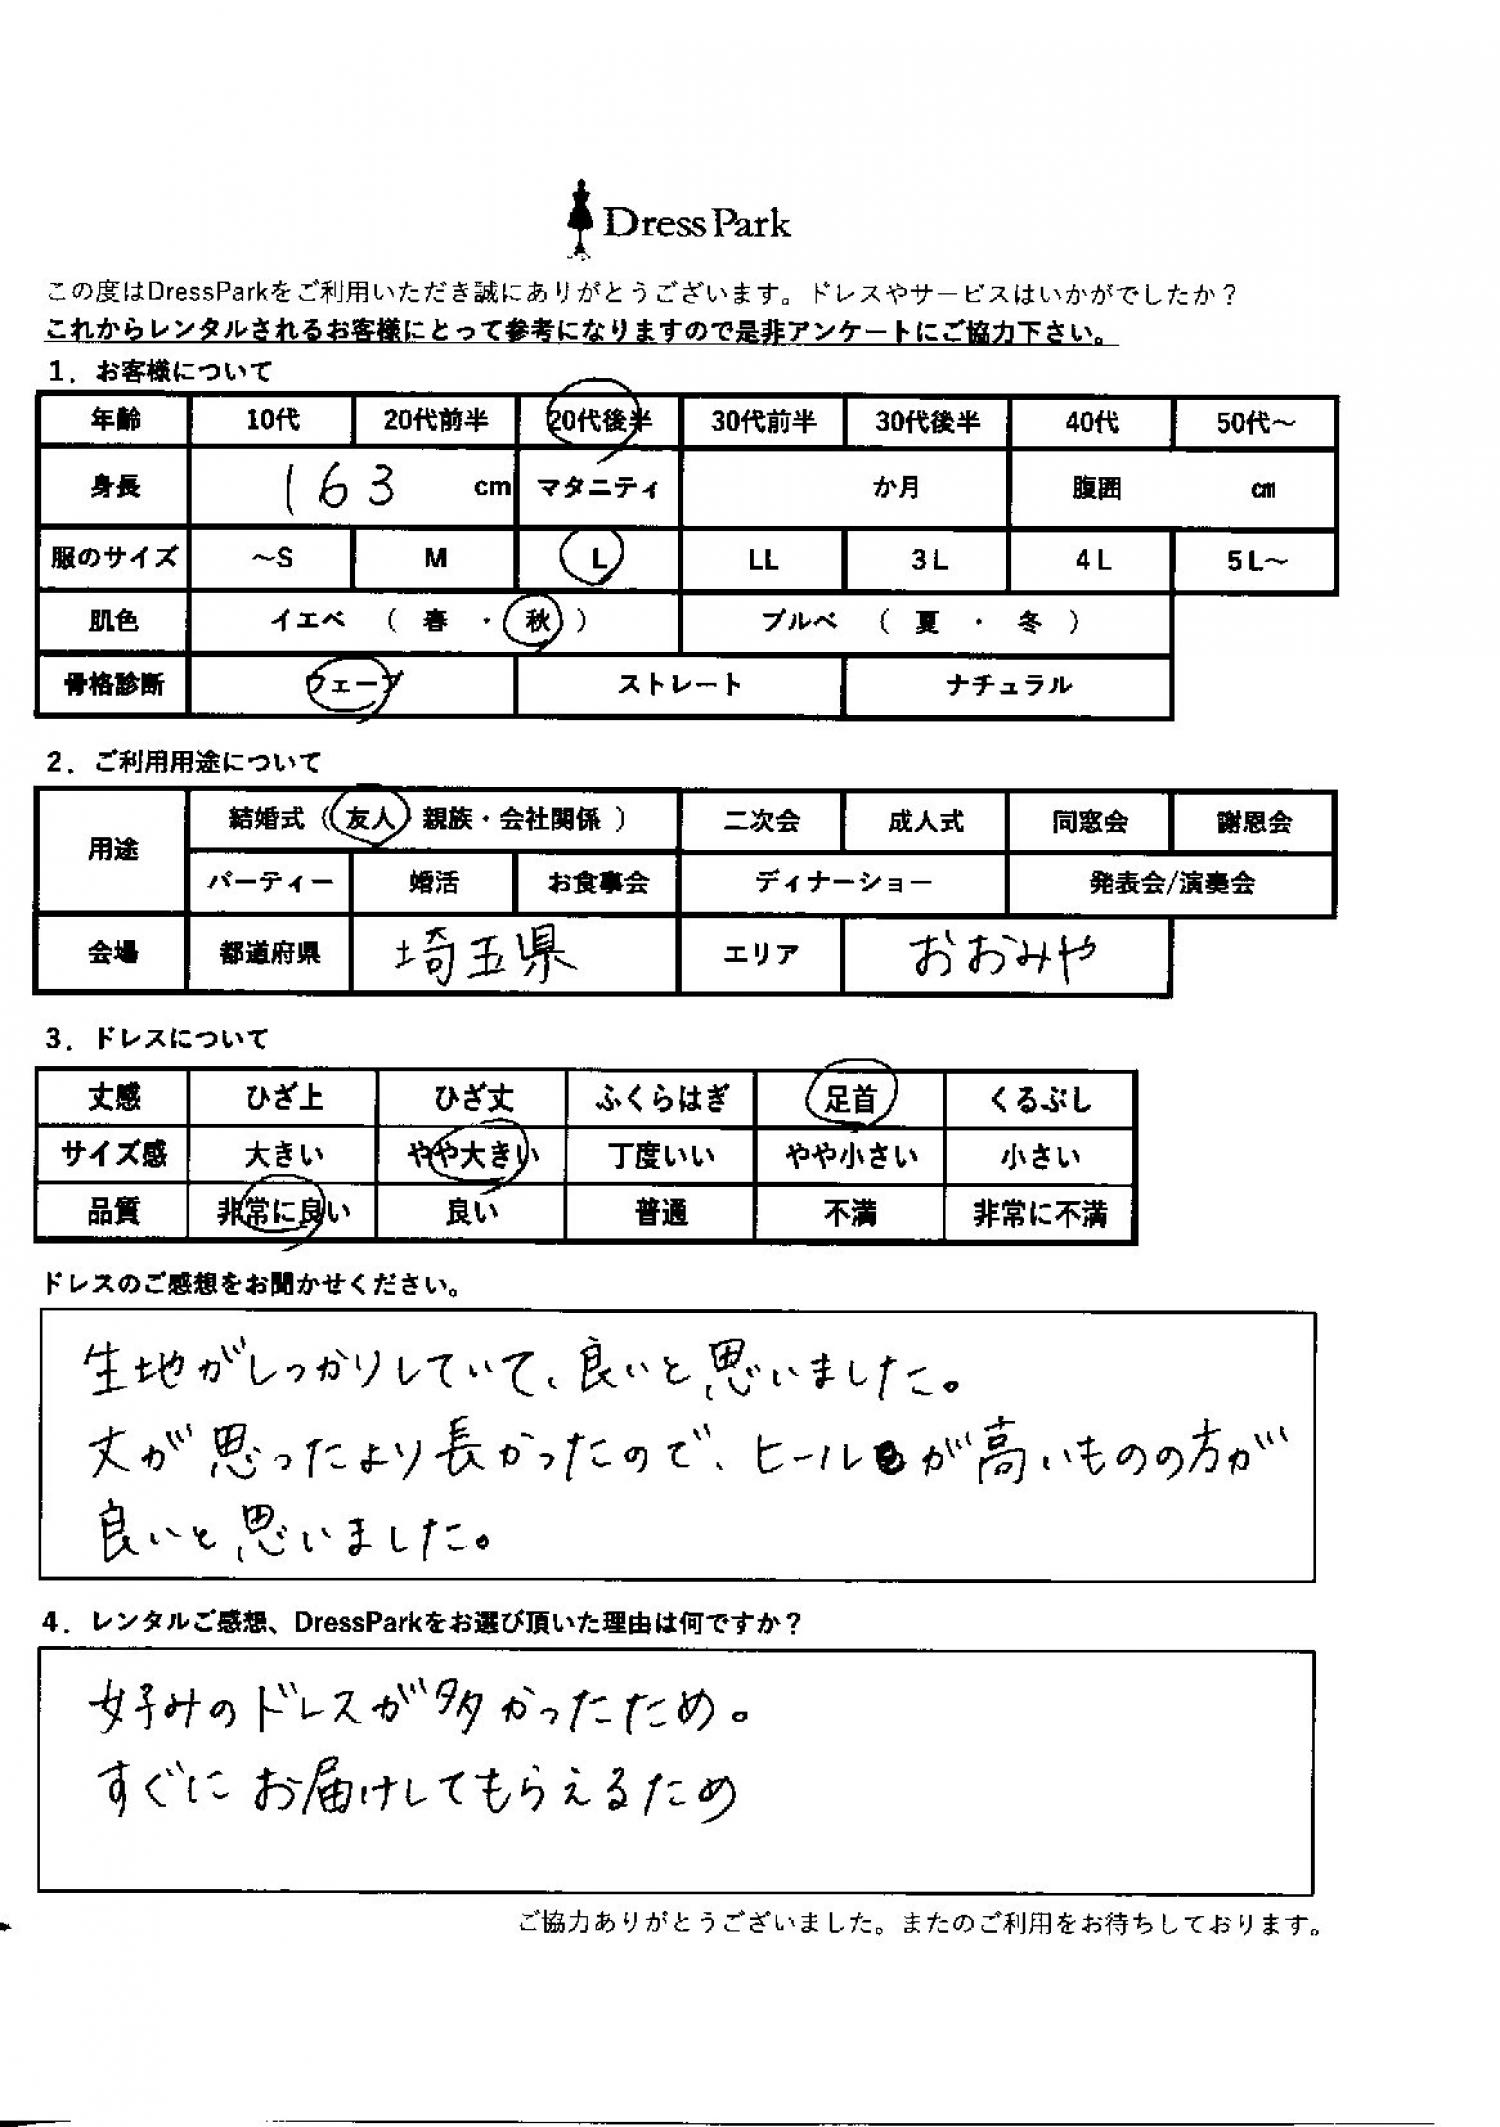 Dress Park
この度はDressParkをご利用いただき誠にありがとうございます。ドレスやサービスはいかがでしたか？
これからレンタルされるお客様にとって参考になりますので是非アンケートにご協力下さい。
1．お客様について
年齢 10代 20代前半 20代後半 30代前半 30代後半 40代 50代～
身長 163 cm マタニティ か月 腹囲 ㎝
服のサイズ ～S M L LL 3L 4L 5L～
肌色 イエベ （ 春 ・ 秋 ） ブルベ （ 夏 ・ 冬 ）
骨格診断 ウェーブ ストレート ナチュラル
2．ご利用用途について
用途 結婚式（ 友人 親族・会社関係 ） 二次会 成人式 同窓会 謝恩会
パーティー 婚活 お食事会 ディナーショー 発表会/演奏会
会場 都道府県 埼玉県 エリア おおみや
3．ドレスについて
丈感 ひざ上 ひざ丈 ふくらはぎ 足首 くるぶし
サイズ感 大きい やや大きい 丁度いい やや小さい 小さい
品質 非常に良い 良い 普通 不満 非常に不満
ドレスのご感想をお聞かせください。
生地がしっかりしていて、良いと思いました。
丈が思ったより長かったので、ヒールが高いものの方が
良いと思いました。
4．レンタルご感想、DressParkをお選び頂いた理由は何ですか？
好みのドレスが多かったため。
すぐにお届けしてもらえるため
ご協力ありがとうございました。またのご利用をお待ちしております。